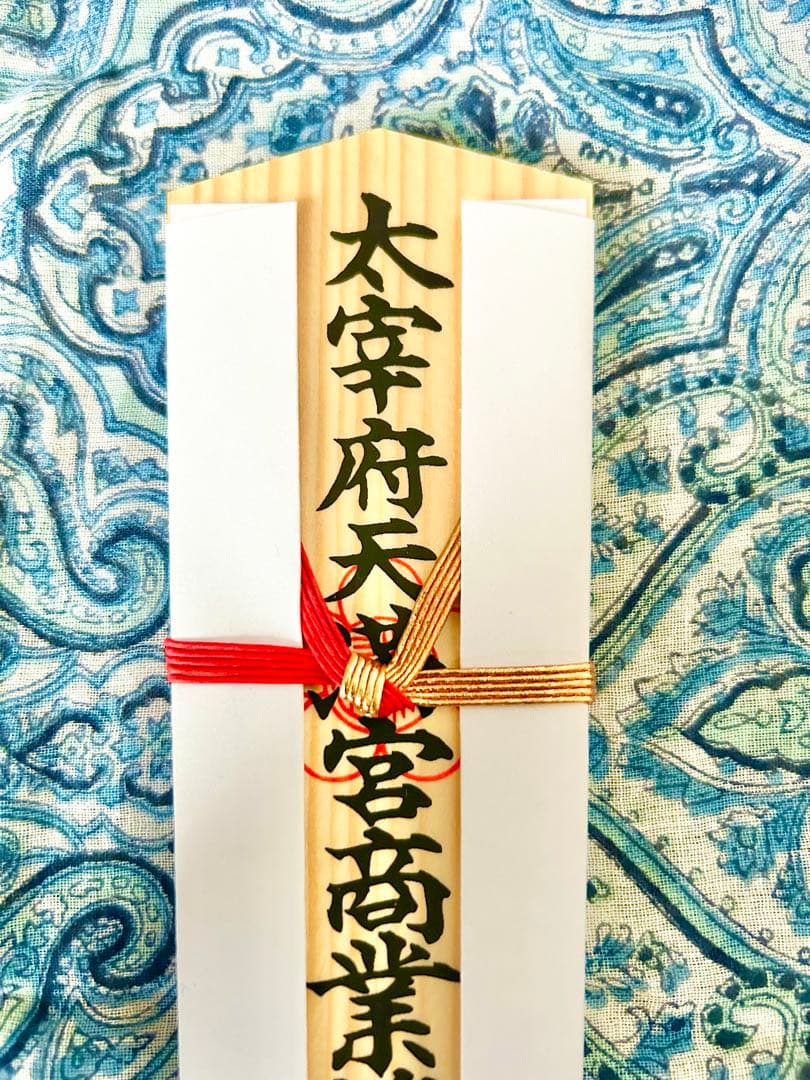 太宰府天満宮商業